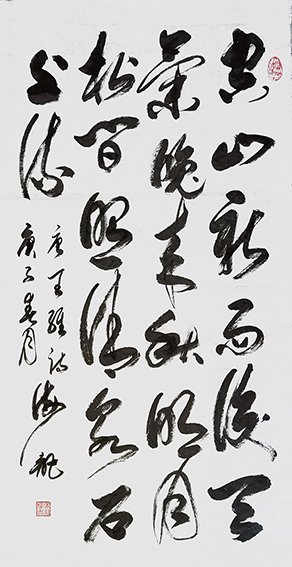 空山新雨後天
氣晚来秋明月
松间照清泉石
上流
唐王维诗
庚子春月
海龍